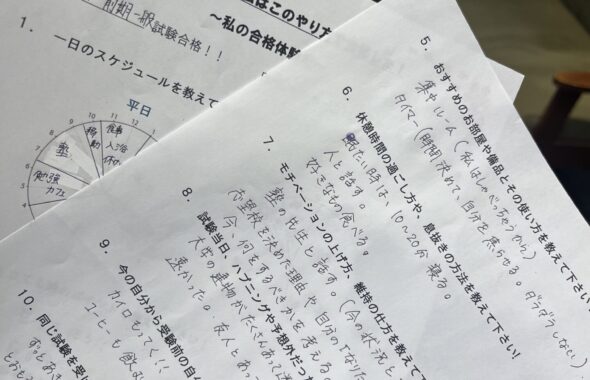 はこのやり方
前期一般試験合格！！
～私の合格体験
1. 一日のスケジュールを教えて
平日
塾
移動
食事
入浴
勉強
カフェ
4
5
6
7
8
9
10
11
12
1
5. おすすめのお部屋や備品とその使い方を教えて下さい
集中ルーム（私はしゃべっちゃうから）
タイマー（時間決めて、自分を焦らせる。ダラダラしない）
6. 休憩時間の過ごし方や、息抜きの方法を教えて下さい！
眠たい時は、10～20分寝る。
人と話す。
好きなもの食べる。
7. モチベーションの上げ方、維持の仕方を教えて下
塾の先生と話す。（今の状況と
志望校を決めた理由や自分の「なりた
今、何をするべきかを考える。
8. 試験当日、ハプニングや予想外だった
大学の建物がたくさんあって迷
遠かった。友人とあっ
9. 今の自分から受験前の自
カイロもってく！！
コーヒーも飲
10. 同じ試験を受
ずっとあき